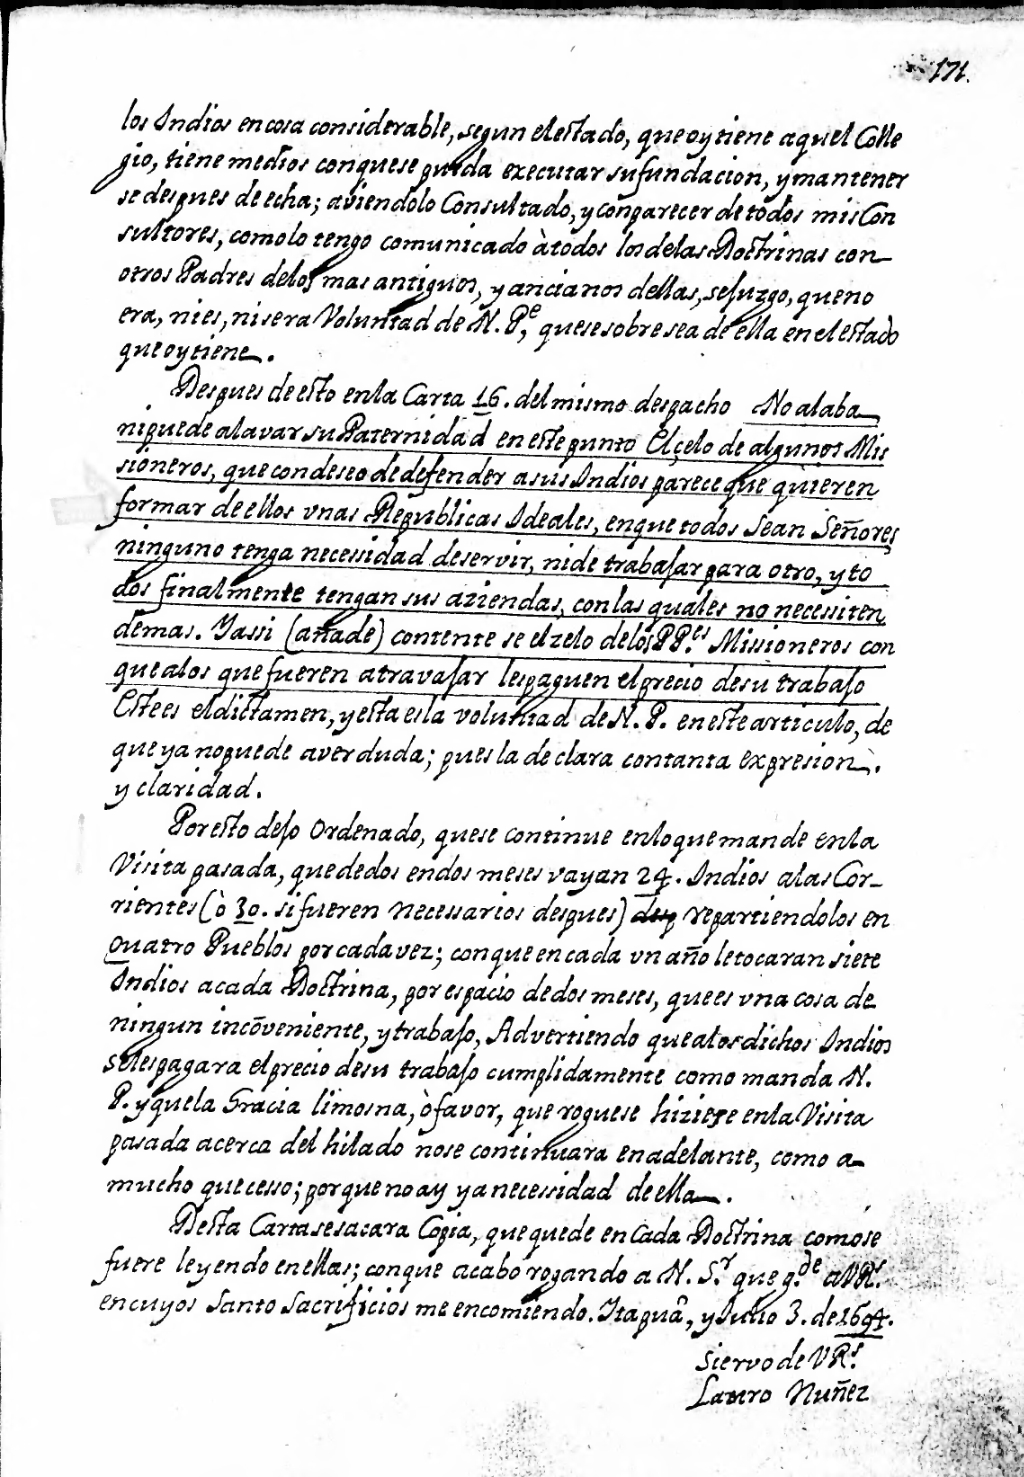 171.
los Indios en cosa considerable, segun el estado, que oy tiene aquel Colle
gio, tiene medios con que se pueda executar su fundacion, y mantener
se despues de echa; aviendolo Consultado, y con parecer de todos mis Con
sultores, como lo tengo comunicado à todos los de las Doctrinas con
otros Padres de los mas antiguos, y ancianos dellas, se juzgo, que no
era, ni es, ni sera Voluntad de N. P.e, que se sobre sea de ella en el estado
que oy tiene.
Despues de esto en la Carta 16. del mismo despacho No alaba
ni puede alavar su Paternidad en este punto El çelo de algunos Mis
sioneros, que con deseo de defender a sus Indios parece que quieren
formar de ellos vnas Republicas Ideales, en que todos Sean Señores
ninguno tenga necessidad de servir, ni de trabajar para otro, y to
dos finalmente tengan sus aziendas, con las quales no necessiten
demas. Y assi (añade) contente se el zelo de los PP.es Missioneros con
que a los que fueren a travajar les paguen el precio de su trabajo
Este es el dictamen, y esta es la voluntad de N. P. en este articulo, de
que ya no puede aver duda; pues la declara con tanta expresion,
y claridad.
Por esto dejo Ordenado, que se continue en lo que mande en la
Visita pasada, que de dos en dos meses vayan 24. Indios a las Cor_
rientes (ò 30. si fueren necessarios despues) desp repartiendolos en
quatro Pueblos por cada vez; con que en cada vn año le tocaran siete
Indios a cada Doctrina, por espacio de dos meses, que es vna cosa de
ningun incõveniente, y trabajo, Advertiendo que a los dichos Indios
se les pagara el precio de su trabajo cumplidamente como manda N.
P. y que la Gracia limosna, ò favor, que rogue se hiziese en la Visita
pasada acerca del hilado no se continuara en adelante, como a
mucho que cesso; por que no ay ya necessidad de ella.
Desta Carta se sacara Copia, que quede en Cada Doctrina como se
fuere leyendo en ellas; con que acabo rogando a N. S.r que g.de a VRs.
en cuyos Santo Sacrificios me encomiendo. Itapuã, y Julio 3. de 1694.
Siervo de VRs.
Lauro Nuñez